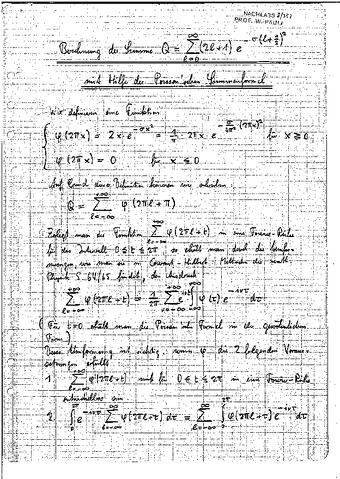 NACHLASS
PROF. W. PAULI
Berechnung der Summe Q = ∑_{l=0}^{∞} (2l+1) e^{-σ(l+½)²}
mit Hilfe der Poisson'schen Summenformel
Wir definieren eine Funktion
φ(2πx) = 2x e^{-σx²} = 1/π · 2πx e^{-σ/4π² (2πx)²} für x ≥ 0
φ(2πx) = 0 für x ≤ 0
Auf Grund dieser Definition können wir schreiben:
Q = ∑_{l=-∞}^{+∞} φ(2πl+π)
Zerlegt man die Funktion ∑_{l=-∞}^{+∞} φ(2πl+t) in eine Fourier-Reihe
für das Intervall 0 ≤ t ≤ 2π so erhält man durch die Umfor-
mungen, wie man sie in Courant-Hilbert: Methoden der math.
Physik I 64/65 findet, den Ausdruck
∑_{l=-∞}^{+∞} φ(2πl+t) = 1/2π ∑_{ν=-∞}^{+∞} e^{iνt} ∫_{-∞}^{+∞} φ(τ) e^{-iντ} dτ
(Für t=0 erhält man die Poisson'sche Formel in der gewöhnlichen
Form)
Diese Umformung ist richtig, wenn φ die 2 folgenden Voraus-
setzungen erfüllt
1. ∑_{l=-∞}^{+∞} φ(2πl+t) muß für 0 ≤ t ≤ 2π in eine Fourier-Reihe
entwickelbar sein
2. ∫_0^{2π} e^{-iντ} ∑_{l=-∞}^{∞} φ(2πl+τ) dτ = ∑_{l=-∞}^{∞} ∫_0^{2π} φ(2πl+τ) e^{-iντ} dτ